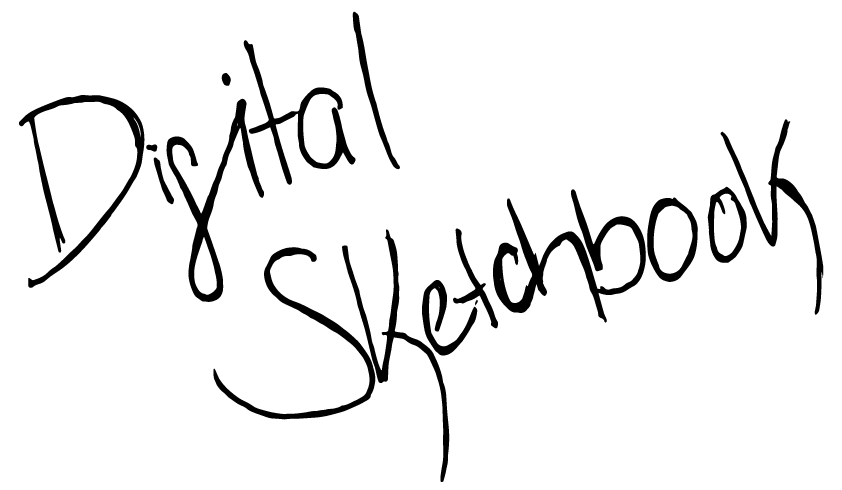 Digital
Sketchbook